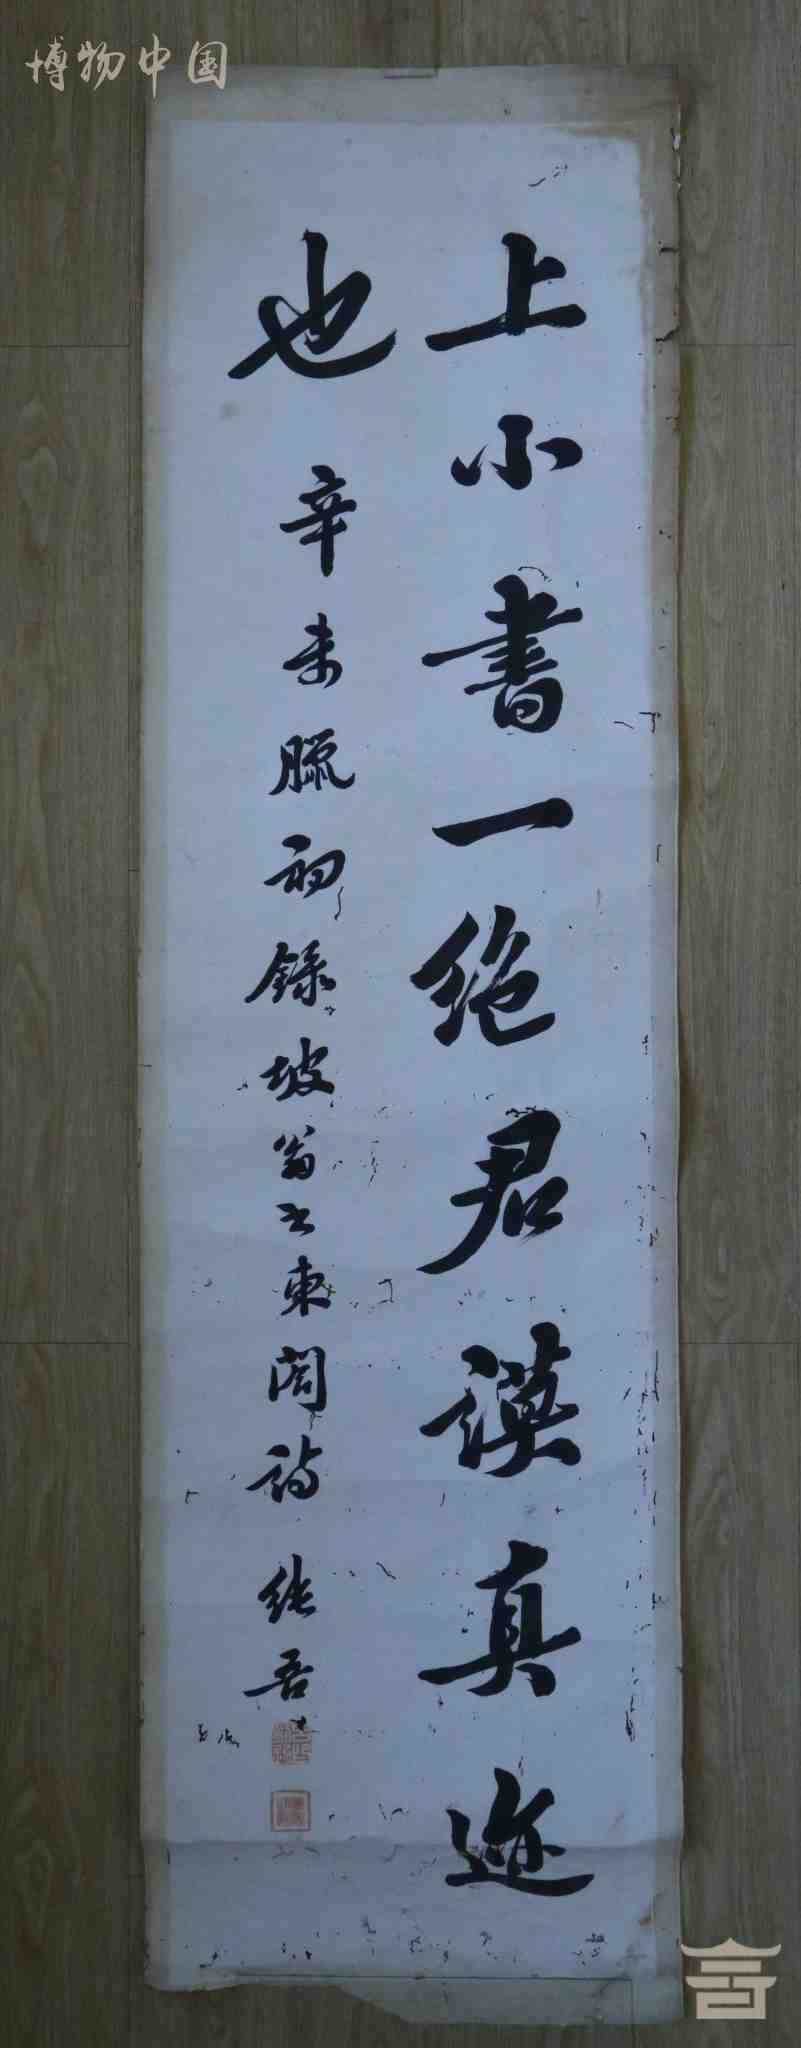 博物中国
上小書一绝君謨真迹
也
辛未臘初錄坡翁書東閣詩